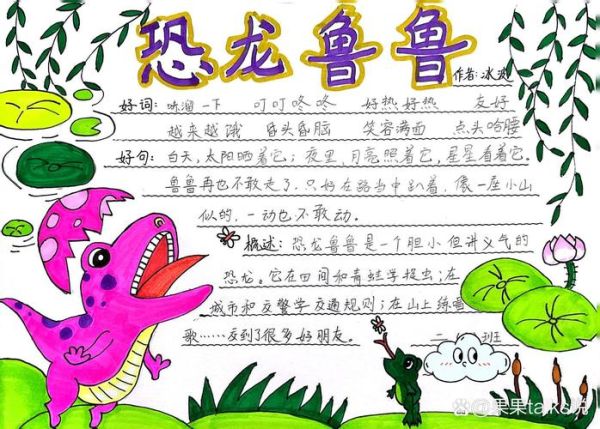 恐龙鲁鲁
作者:冰波
好词: 溜一下 叮叮咚咚 好热好热 友好
越来越饿 昏头昏脑 笑容满面 点头哈腰
好句:白天,太阳晒着它;夜里,月亮照着它,星星看着它。
鲁鲁再也不敢走了,只好在路当中趴着,像一座小山
似的,一动也不敢动。
概述:恐龙鲁鲁是一个胆小但讲义气的
恐龙。它在田间和青蛙学捉虫;在
城市和交警学交通规则;在山上练唱
歌……交到了很多好朋友。
二 班
果果talks